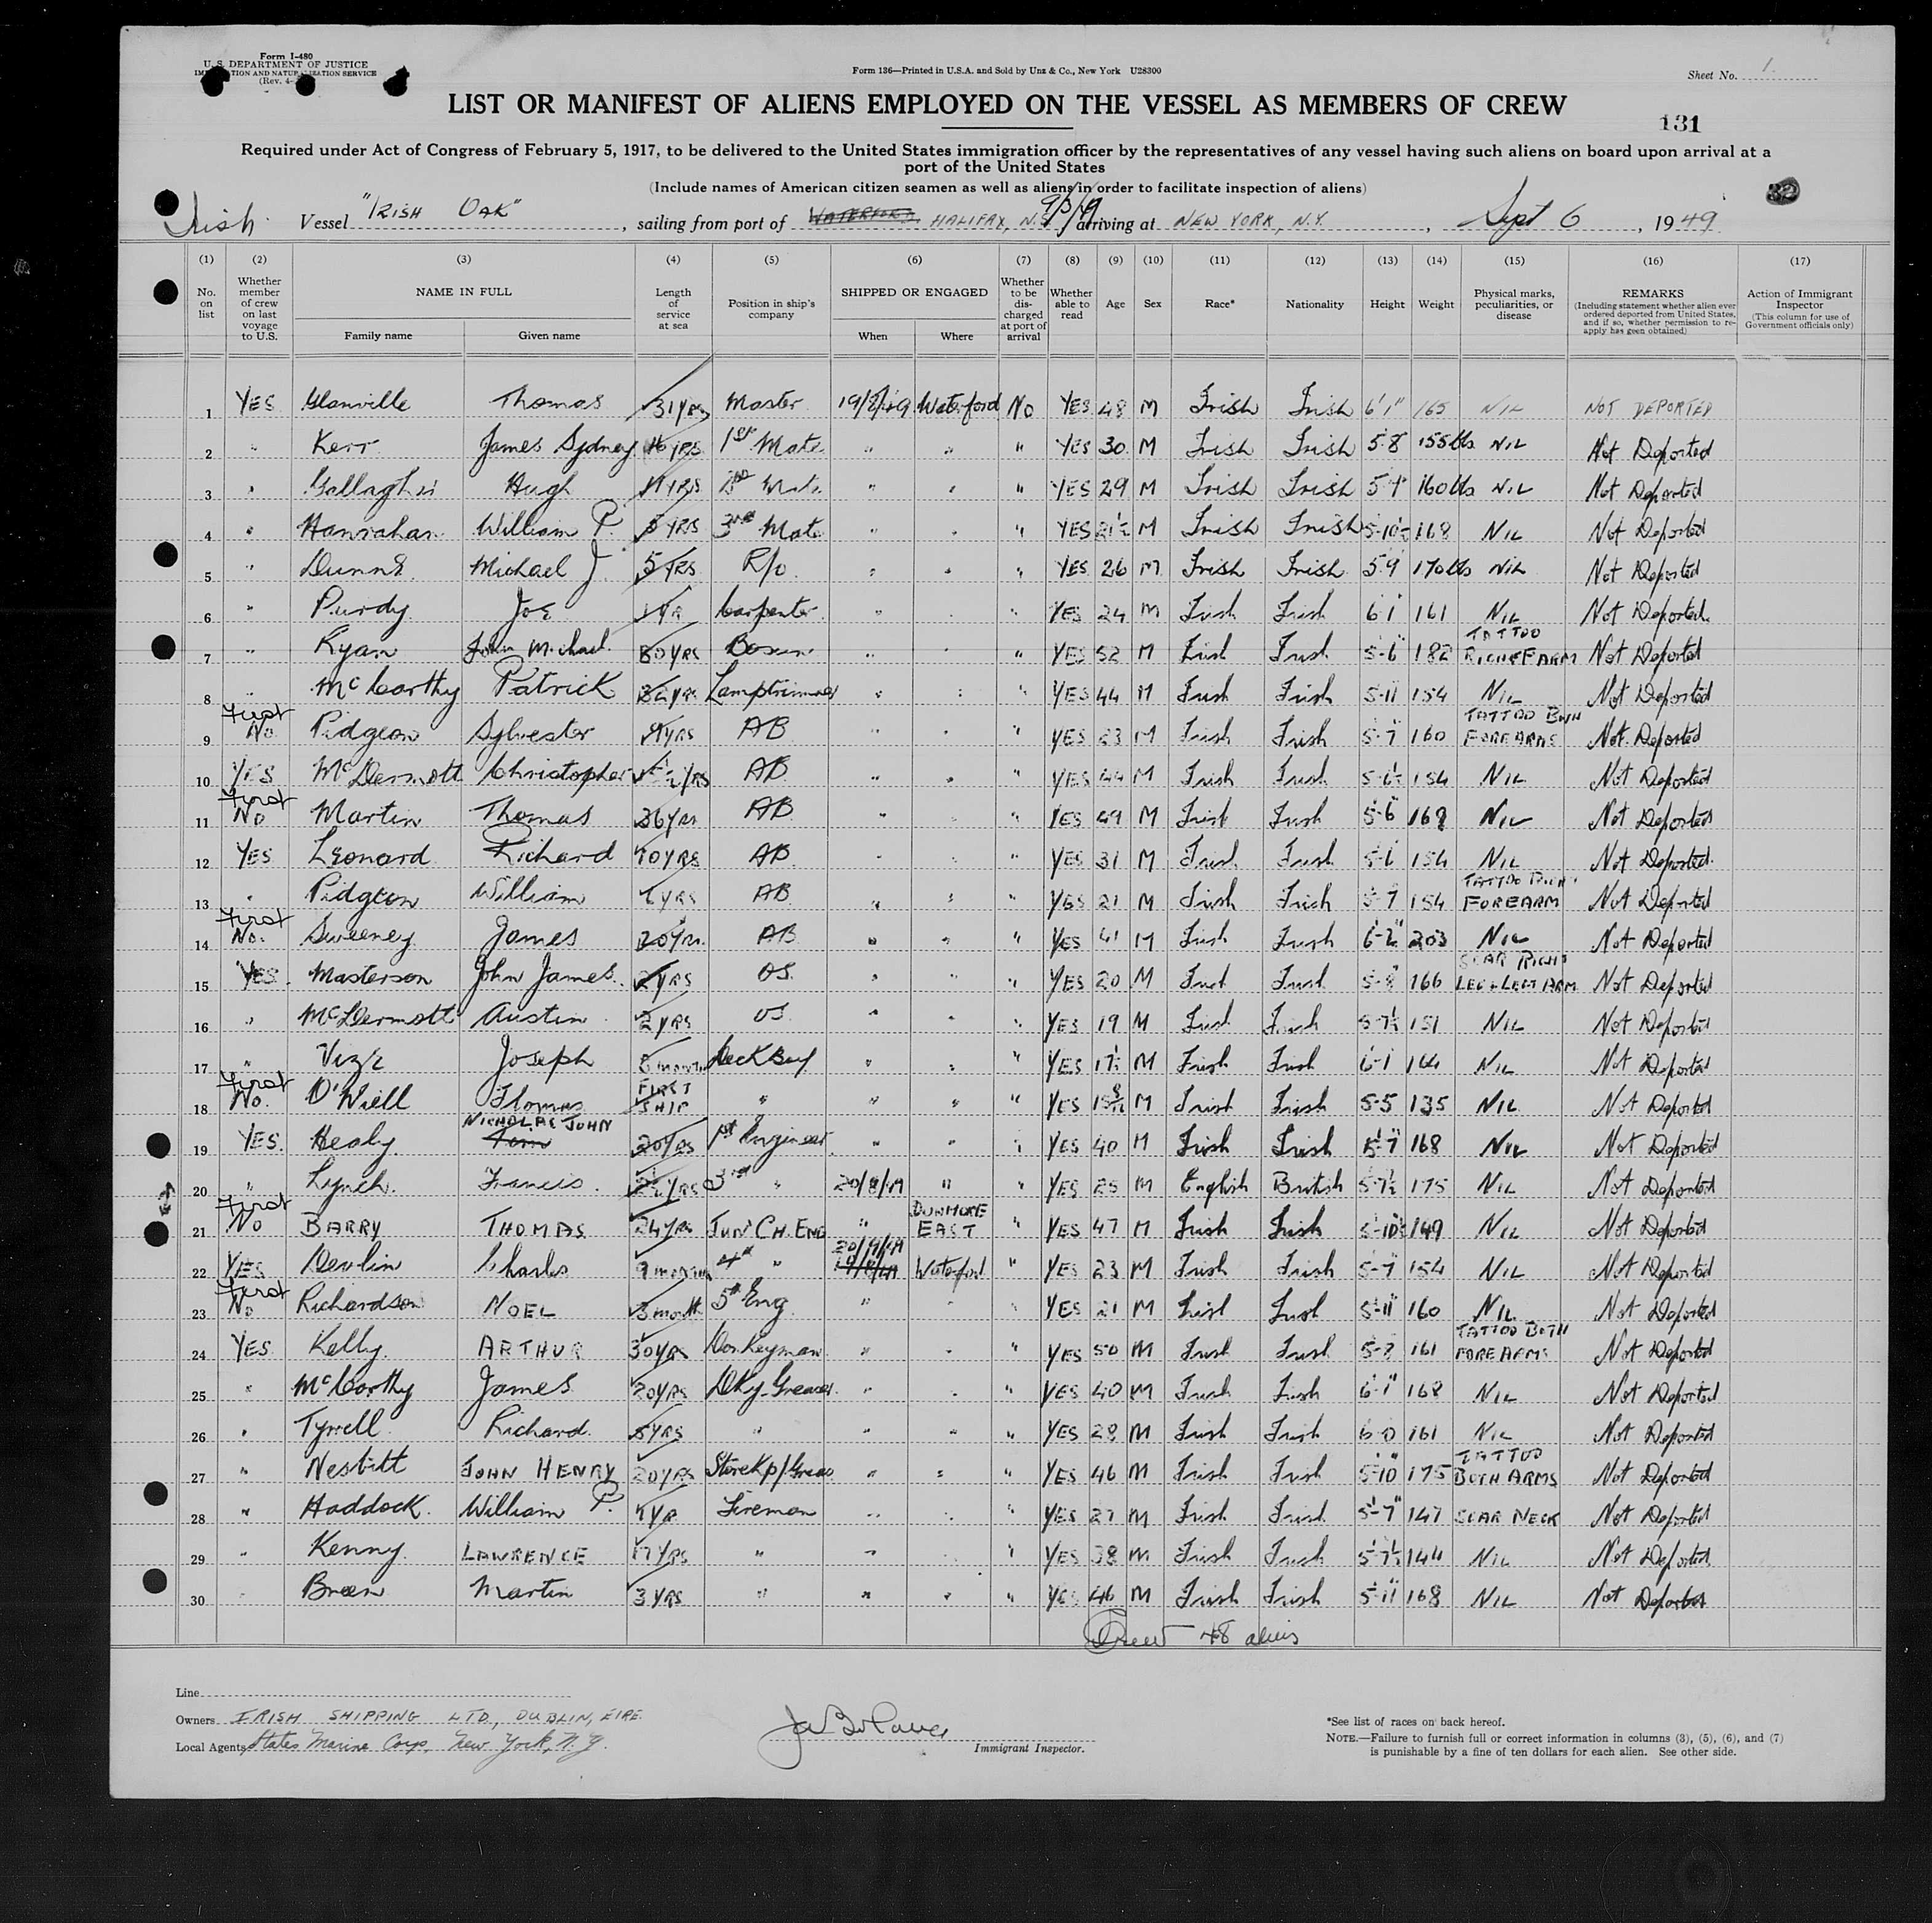 Form I-480
U. S. DEPARTMENT OF JUSTICE
IMMIGRATION AND NATURALIZATION SERVICE
(Rev. 4-
Form 136—Printed in U.S.A. and Sold by Unz & Co., New York U28300
Sheet No. 1.
LIST OR MANIFEST OF ALIENS EMPLOYED ON THE VESSEL AS MEMBERS OF CREW
131
Required under Act of Congress of February 5, 1917, to be delivered to the United States immigration officer by the representatives of any vessel having such aliens on board upon arrival at a
port of the United States
(Include names of American citizen seamen as well as aliens in order to facilitate inspection of aliens)
32
Irish Vessel "IRISH OAK", sailing from port of WATERFORD HALIFAX, N.S. 9/3/49 arriving at NEW YORK, N.Y., Sept 6, 1949
(1) (2) (3) (4) (5) (6) (7) (8) (9) (10) (11) (12) (13) (14) (15) (16) (17)
No. on list
Whether member of crew on last voyage to U.S.
NAME IN FULL
Family name
Given name
Length of service at sea
Position in ship's company
SHIPPED OR ENGAGED
When
Where
Whether to be discharged at port of arrival
Whether able to read
Age
Sex
Race*
Nationality
Height
Weight
Physical marks, peculiarities, or disease
REMARKS
(Including statement whether alien ever ordered deported from United States, and if so, whether permission to re-apply has been obtained)
Action of Immigrant Inspector
(This column for use of Government officials only)
1 YES Glanville Thomas 31 YRS Master 19/8/49 Waterford No YES 48 M Irish Irish 6'1" 165 NIL NOT DEPORTED
2 " Kerr James Sydney YRS 1st Mate " " " YES 30 M Irish Irish 5-8 155lbs NIL Not Deported
3 " Gallagher Hugh YRS Mate " " " YES 29 M Irish Irish 160lbs NIL Not Deported
4 " Hanrahan William P. 5 YRS 3rd Mate " " " YES 21½ M Irish Irish 5-10½ 168 NIL Not Deported
5 " Dunne Michael J. 5 YRS R/o " " " YES 26 M Irish Irish 5-9 170lbs NIL Not Deported
6 " Purdy Joe 1 YR Carpenter " " " YES 24 M Irish Irish 6-1 161 NIL Not Deported
7 " Ryan John Michael 30 YRS Bosun " " " YES 52 M Irish Irish 5-6 182 TATTOO RIGHT FARM Not Deported
8 " McCarthy Patrick YRS Lamptrimmer " " " YES 44 M Irish Irish 5-11 154 NIL Not Deported
9 First No Pidgeon Sylvester YRS AB " " " YES 23 M Irish Irish 5-7 160 TATTOO BOTH FOREARMS Not Deported
10 YES McDermott Christopher YRS AB " " " YES 44 M Irish Irish 5-6½ 154 NIL Not Deported
11 First No Martin Thomas 36 YRS AB " " " YES 49 M Irish Irish 5-6 168 NIL Not Deported
12 YES Leonard Richard 10 YRS AB " " " YES 31 M Irish Irish 5-6 154 NIL Not Deported
13 " Pidgeon William YRS AB " " " YES 21 M Irish Irish 5-7 154 TATTOO FOREARM Not Deported
14 First No. Sweeney James 20 YRS. AB " " " YES 41 M Irish Irish 6-2 203 NIL Not Deported
15 YES Masterson John James 2 YRS OS. " " " YES 20 M Irish Irish 5-8 166 SCAR RIGHT LEG & LEFT ARM Not Deported
16 " McDermott Austin 2 YRS OS " " " YES 19 M Irish Irish 5-7½ 151 NIL Not Deported
17 " Vize Joseph months Deck Boy " " " YES 17½ M Irish Irish 6-1 164 NIL Not Deported
18 First No. O'Neill Thomas FIRST SHIP " " " " YES 15 M Irish Irish 5-5 135 NIL Not Deported
19 YES. Healy NICHOLAS JOHN Tom 20 YRS 1st Engineer " " " YES 40 M Irish Irish 5-7 168 NIL Not Deported
20 " Lynch Francis YRS 3rd " 20/8/49 " " YES 25 M English British 5-7½ 175 NIL Not Deported
21 First No BARRY THOMAS 24 YRS JUN' CH. ENG " DUNMORE EAST " YES 47 M Irish Irish 5-10½ 149 NIL Not Deported
22 YES Devlin Charles 9 months 4th " 19/8/49 Waterford " YES 23 M Irish Irish 5-7 154 NIL Not Deported
23 First No Richardson NOEL 3 month 5th Eng. " " " YES 21 M Irish Irish 5-11 160 NIL Not Deported
24 YES Kelly ARTHUR 30 YRS Donkeyman " " " YES 50 M Irish Irish 5-8 161 TATTOO BOTH FOREARMS Not Deported
25 " McCarthy James 20 YRS Dky-Greaser " " " YES 40 M Irish Irish 6-1 168 NIL Not Deported
26 " Tyrrell Richard YRS " " " " YES 28 M Irish Irish 6-0 161 NIL Not Deported
27 " Nesbitt JOHN HENRY 20 YRS StoreKp/Greas " " " YES 46 M Irish Irish 5-10 175 TATTOO BOTH ARMS Not Deported
28 " Haddock William P. YR Fireman " " " YES 27 M Irish Irish 5-7 147 SCAR NECK Not Deported
29 " Kenny LAWRENCE 17 YRS " " " " YES 38 M Irish Irish 5-7½ 144 NIL Not Deported
30 " Breen Martin 3 YRS " " " " YES 46 M Irish Irish 5-11 168 NIL Not Deported
Crew 48 aliens
Line
Owners IRISH SHIPPING LTD, DUBLIN, EIRE.
Local Agents States Marine Corp, New York, N.Y.
Immigrant Inspector.
*See list of races on back hereof.
NOTE.—Failure to furnish full or correct information in columns (3), (5), (6), and (7)
is punishable by a fine of ten dollars for each alien. See other side.